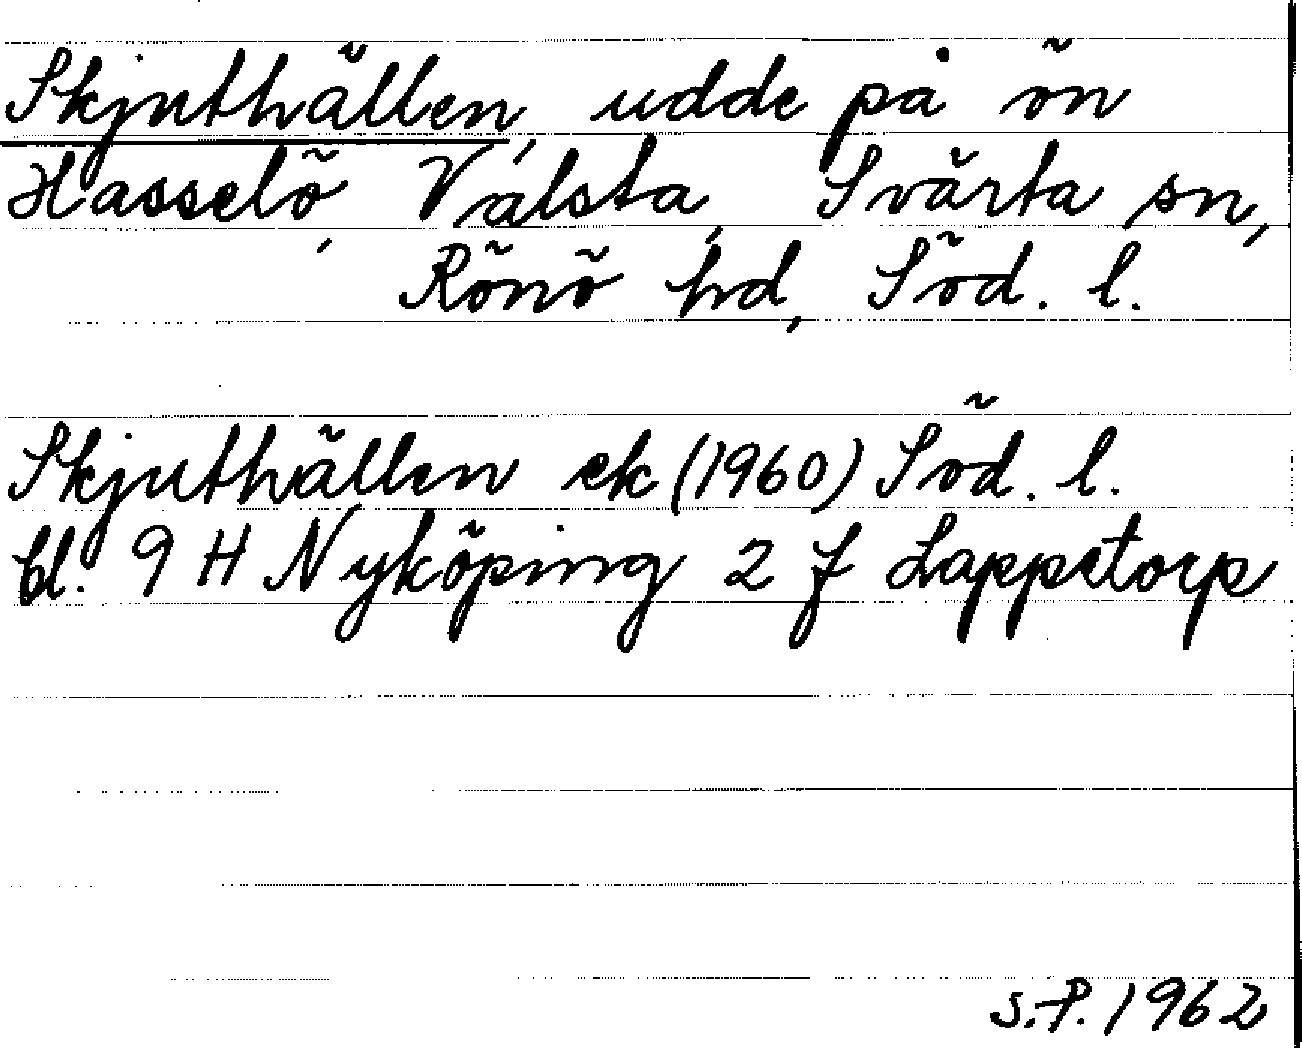 Skjuthällen, udde på ön
Hasselö, Välsta, Svärta sn,
Rönö hd, Söd. l.
Skjuthällen ek (1960) Söd. l.
bl. 9 H Nyköping 2 f Lappetorp
S.P. 1962